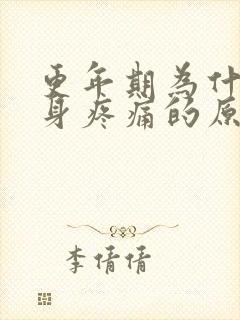 更年期為什
身疼痛的原
李倩倩